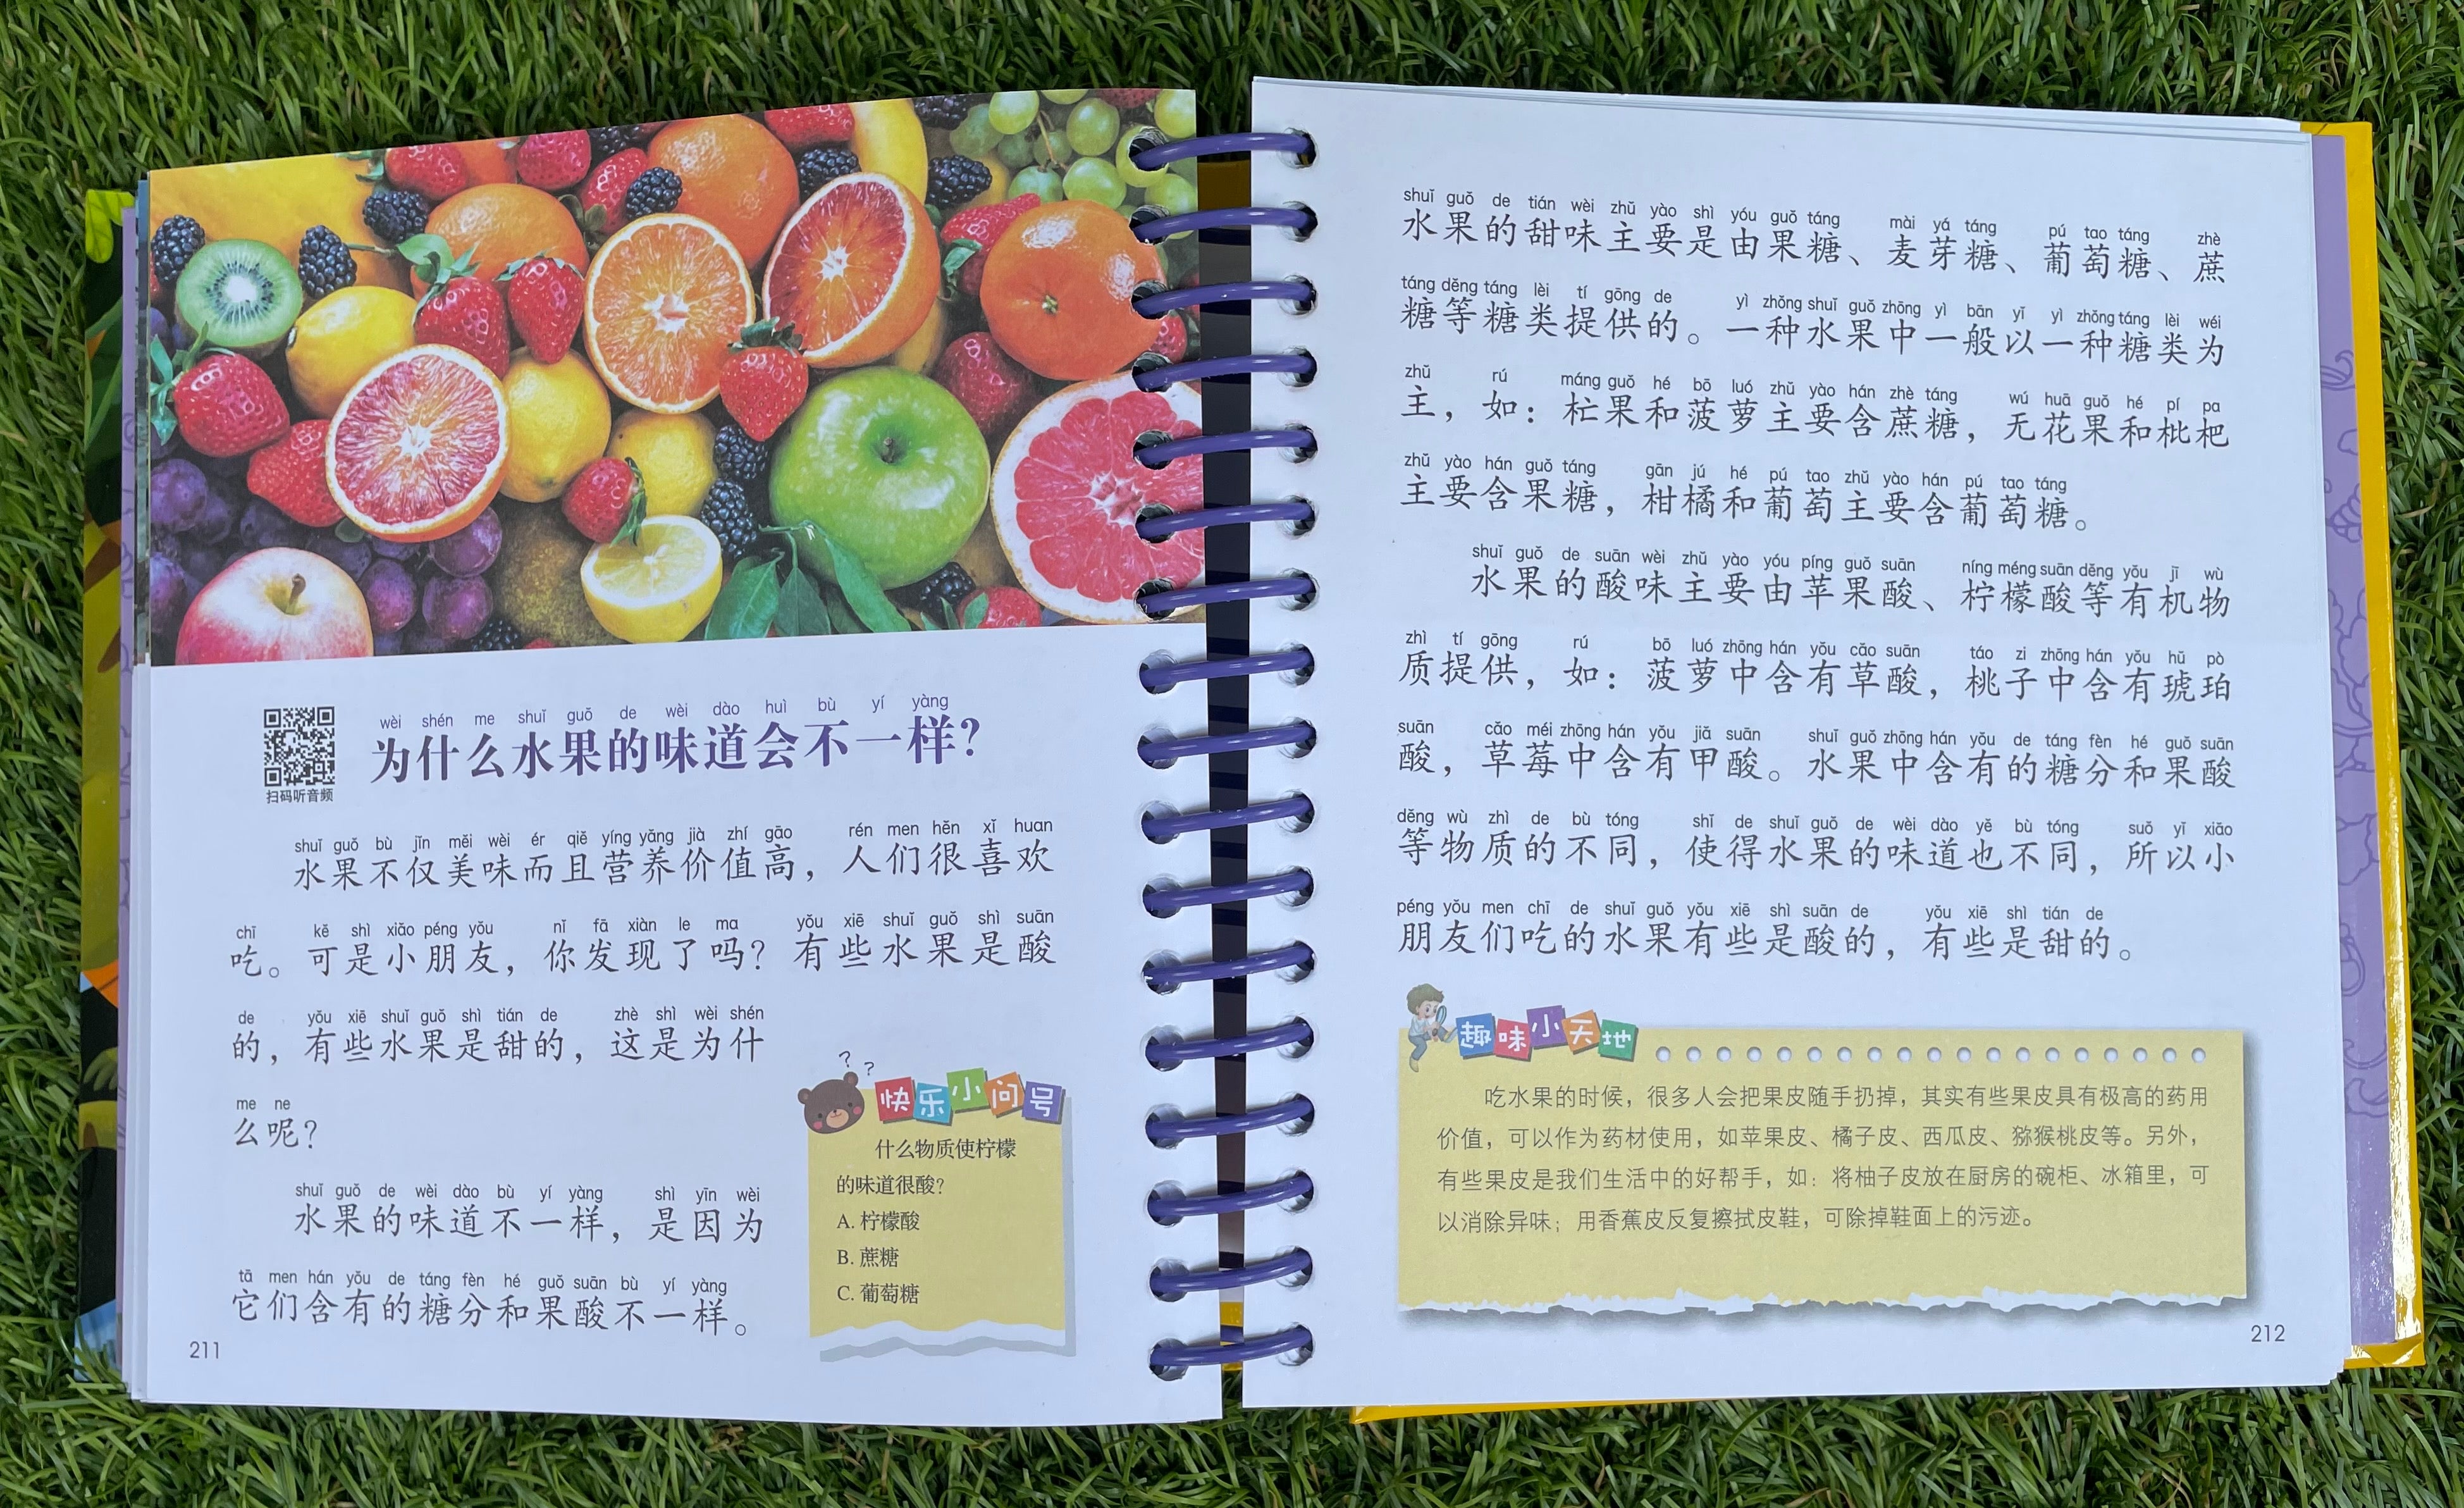 wèi shén me shuǐ guǒ de wèi dào huì bù yí yàng
为什么水果的味道会不一样？
扫码听音频
shuǐ guǒ bù jǐn měi wèi ér qiě yíng yǎng jià zhí gāo rén men hěn xǐ huan
水果不仅美味而且营养价值高，人们很喜欢
chī kě shì xiǎo péng yǒu nǐ fā xiàn le ma yǒu xiē shuǐ guǒ shì suān
吃。可是小朋友，你发现了吗？有些水果是酸
de yǒu xiē shuǐ guǒ shì tián de zhè shì wèi shén
的，有些水果是甜的，这是为什
me ne
么呢？
shuǐ guǒ de wèi dào bù yí yàng shì yīn wèi
水果的味道不一样，是因为
tā men hán yǒu de táng fèn hé guǒ suān bù yí yàng
它们含有的糖分和果酸不一样。
? ?
快乐小问号
什么物质使柠檬
的味道很酸？
A. 柠檬酸
B. 蔗糖
C. 葡萄糖
211
shuǐ guǒ de tián wèi zhǔ yào shì yóu guǒ táng mài yá táng pú tao táng zhè
水果的甜味主要是由果糖、麦芽糖、葡萄糖、蔗
táng děng táng lèi tí gōng de yì zhǒng shuǐ guǒ zhōng yì bān yǐ yì zhǒng táng lèi wéi
糖等糖类提供的。一种水果中一般以一种糖类为
zhǔ rú máng guǒ hé bō luó zhǔ yào hán zhè táng wú huā guǒ hé pí pa
主，如：杧果和菠萝主要含蔗糖，无花果和枇杷
zhǔ yào hán guǒ táng gān jú hé pú tao zhǔ yào hán pú tao táng
主要含果糖，柑橘和葡萄主要含葡萄糖。
shuǐ guǒ de suān wèi zhǔ yào yóu píng guǒ suān níng méng suān děng yǒu jī wù
水果的酸味主要由苹果酸、柠檬酸等有机物
zhì tí gōng rú bō luó zhōng hán yǒu cǎo suān táo zi zhōng hán yǒu hǔ pò
质提供，如：菠萝中含有草酸，桃子中含有琥珀
suān cǎo méi zhōng hán yǒu jiǎ suān shuǐ guǒ zhōng hán yǒu de táng fèn hé guǒ suān
酸，草莓中含有甲酸。水果中含有的糖分和果酸
děng wù zhì de bù tóng shǐ de shuǐ guǒ de wèi dào yě bù tóng suǒ yǐ xiǎo
等物质的不同，使得水果的味道也不同，所以小
péng yǒu men chī de shuǐ guǒ yǒu xiē shì suān de yǒu xiē shì tián de
朋友们吃的水果有些是酸的，有些是甜的。
趣味小天地
吃水果的时候，很多人会把果皮随手扔掉，其实有些果皮具有极高的药用
价值，可以作为药材使用，如苹果皮、橘子皮、西瓜皮、猕猴桃皮等。另外，
有些果皮是我们生活中的好帮手，如：将柚子皮放在厨房的碗柜、冰箱里，可
以消除异味；用香蕉皮反复擦拭皮鞋，可除掉鞋面上的污迹。
212